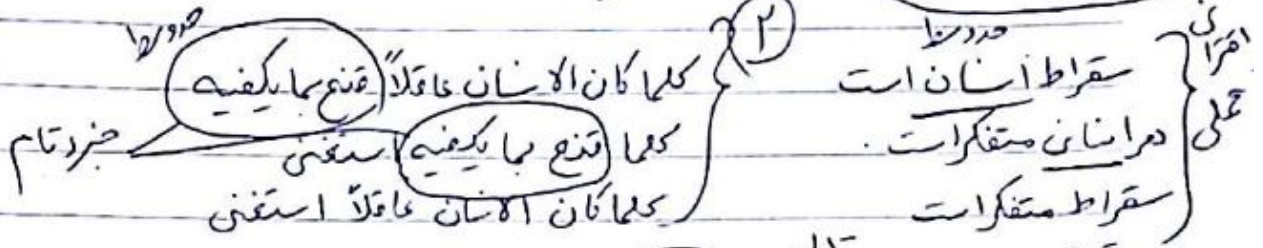 اقترانی حملی
حد وسط
سقراط انسان است
و هر انسانی متفکر است.
سقراط متفکر است
۲
حد وسط
کلما کان الانسان عاقلاً قنع بما یکفیه
کلما قنع بما یکفیه استغنی
کلما کان الانسان عاقلاً استغنی
جزء تام